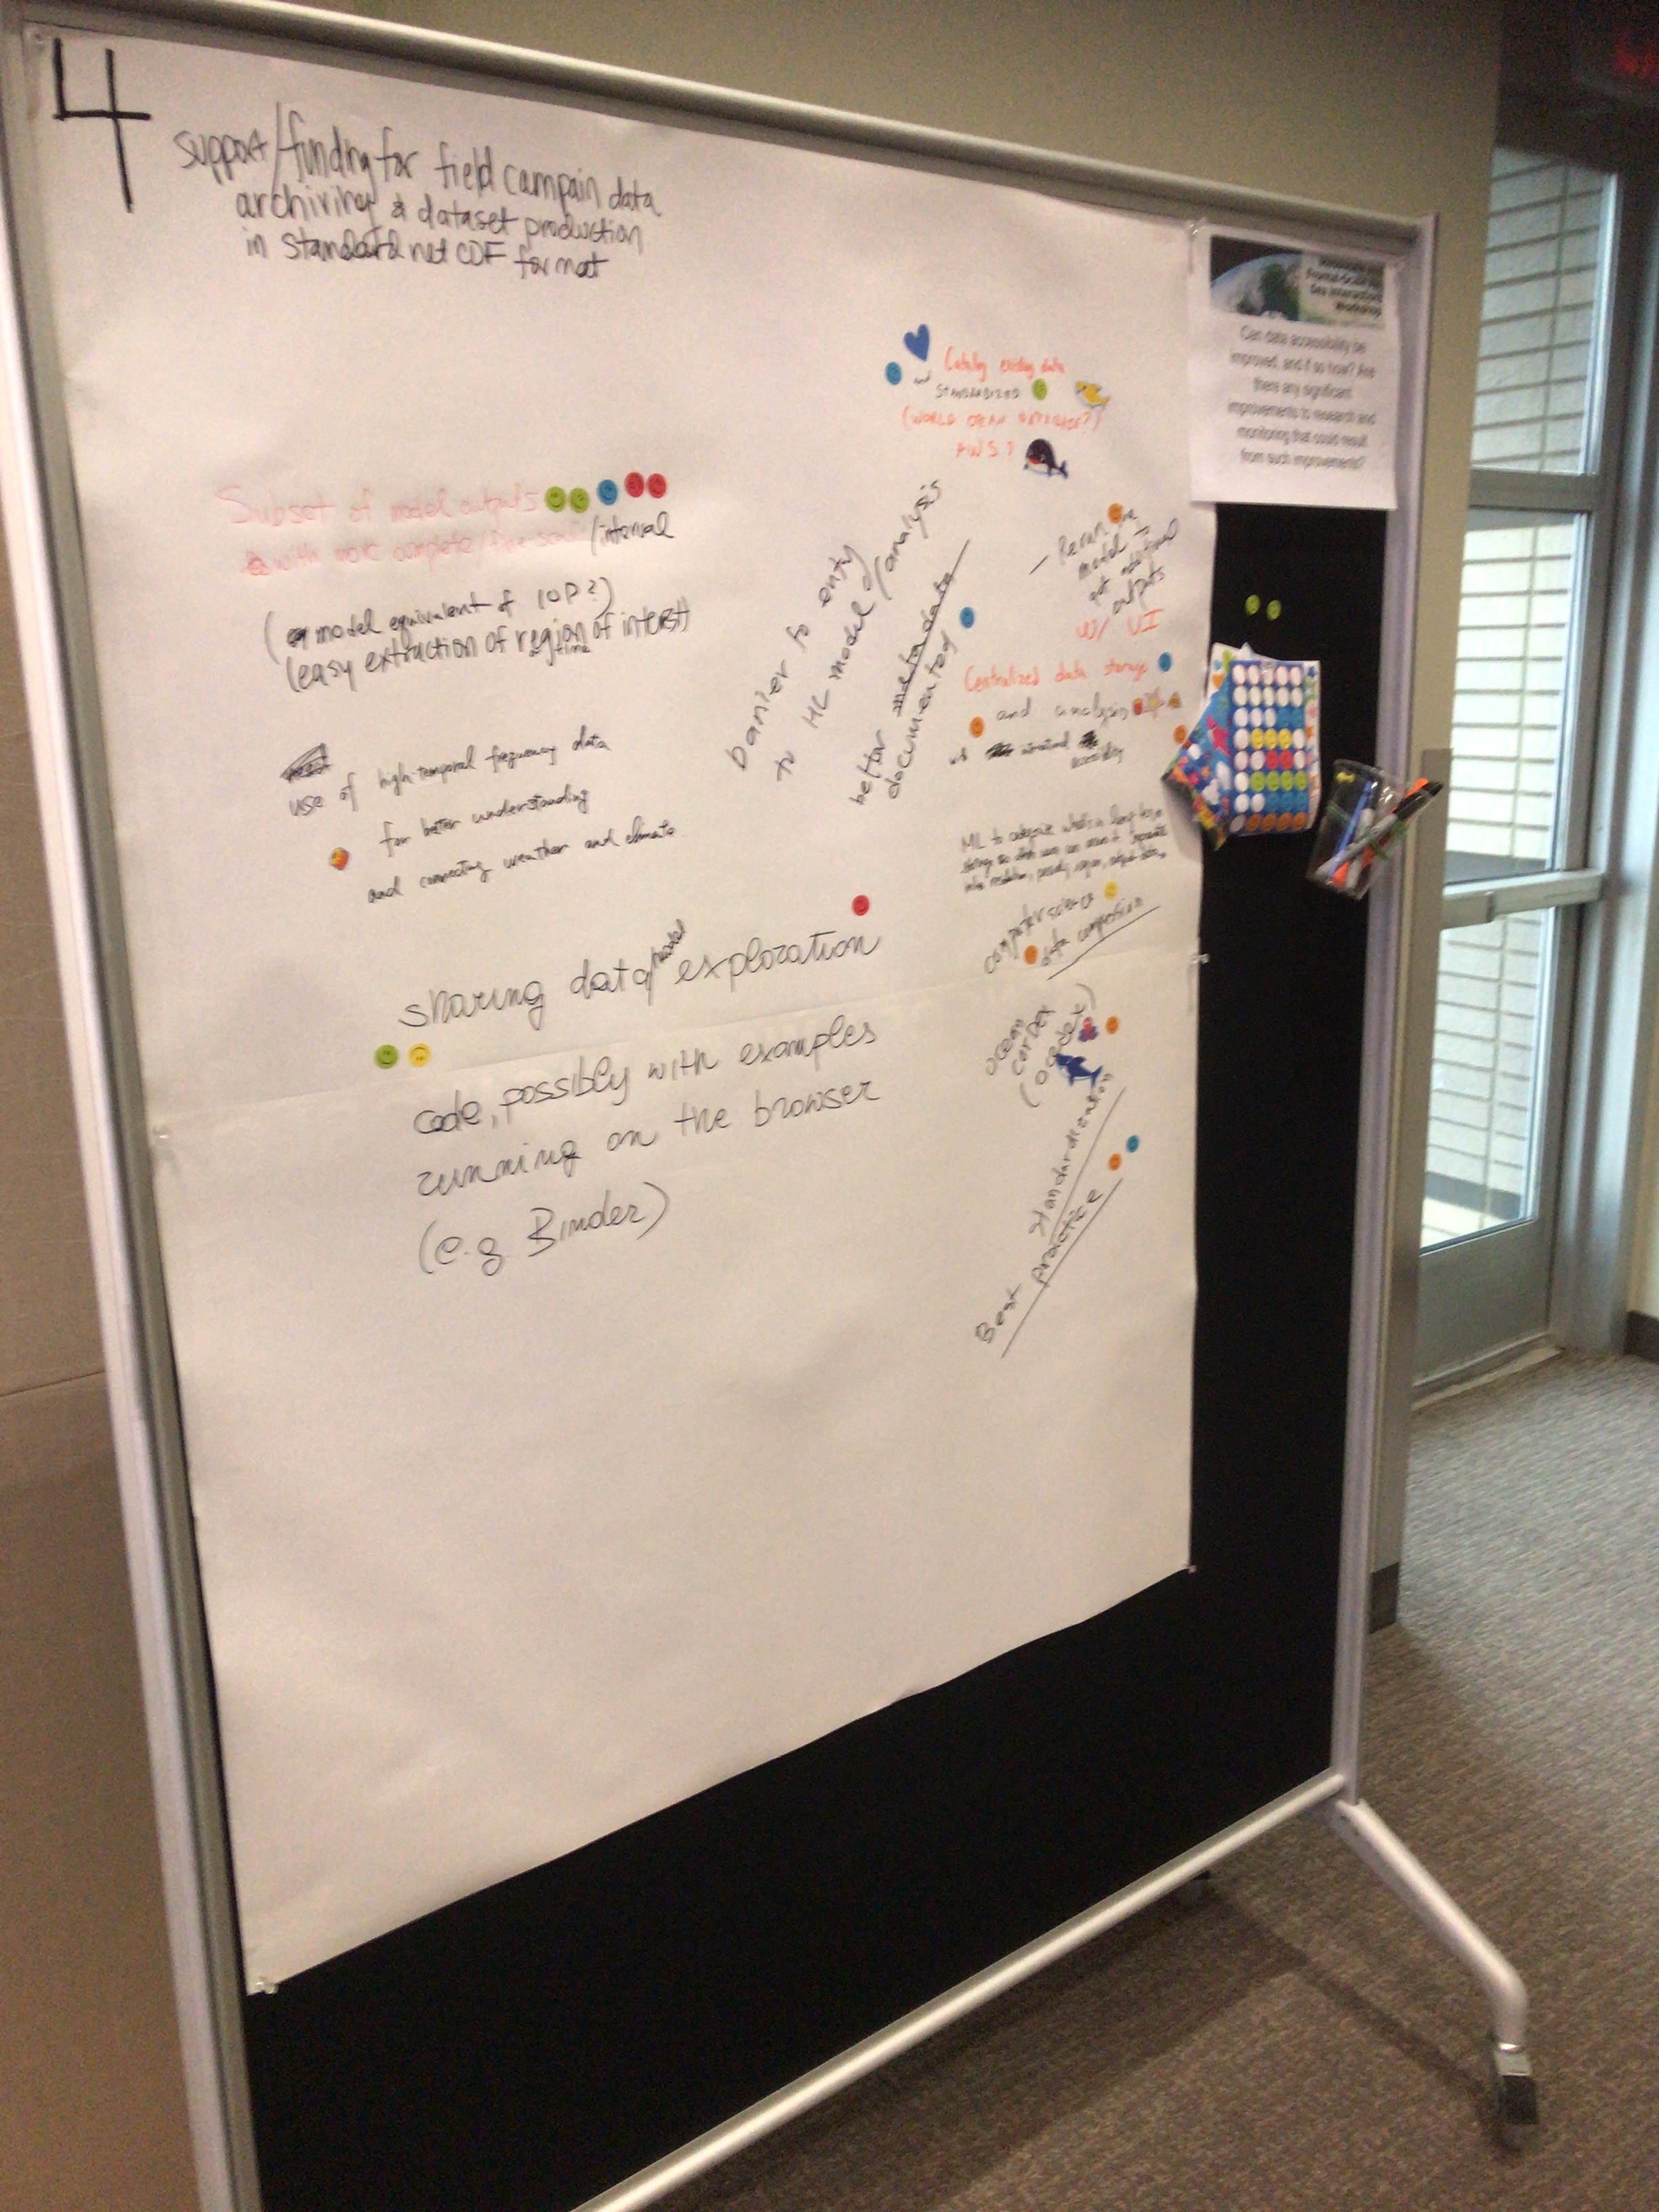 4
support/funding for field campain data
archiving & dataset production
in standard netCDF format
Frontal-Scale Air
Sea Interaction
Workshop
Can data accessibility be
improved, and if so how? Are
there any significant
improvements to research and
monitoring that could result
from such improvements?
Catalog existing data
and STANDARDIZED
(WORLD OCEAN DATABASE?)
AWS?
Subset of model outputs
with more complete/fine-scale/interval
(model equivalent of IOP?)
(easy extraction of region of interest)
time
barrier to enty
to ML model/analysis
better metadata
documented
Rerun
model
outputs
w/ UI
Centralized data storage
and analysis
use of high-temporal frequency data
for better understanding
and connecting weather and climate
ML to
computer science
data compression
sharing data/model exploration
code, possibly with examples
running on the browser
(e.g. Binder)
ocean
cordex
(ocodex)
standardization
Best practice